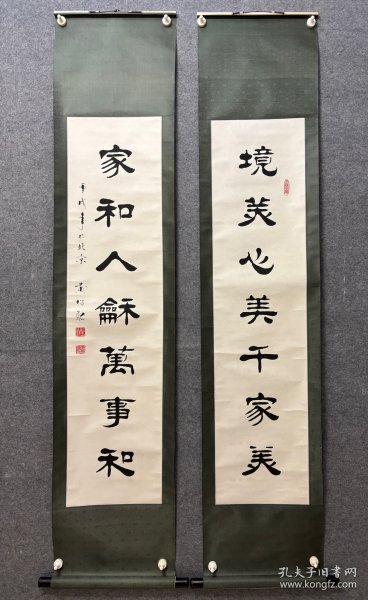 境美心美千家美
家和人龢萬事和
孔夫子旧书网
www.kongfz.com